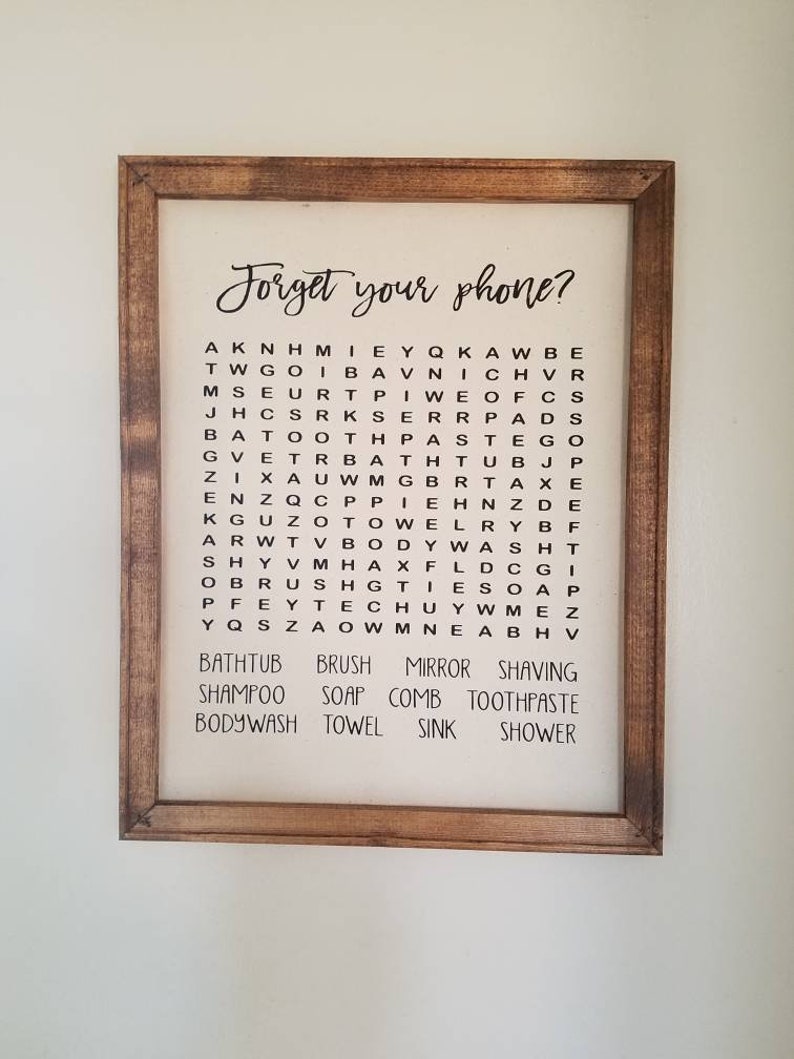 Forget your phone?
A K N H M I E Y Q K A W B E
T W G O I B A V N I C H V R
M S E U R T P I W E O F C S
J H C S R K S E R R P A D S
B A T O O T H P A S T E G O
G V E T R B A T H T U B J P
Z I X A U W M G B R T A X E
E N Z Q C P P I E H N Z D E
K G U Z O T O W E L R Y B F
A R W T V B O D Y W A S H T
S H Y V M H A X F L D C G I
O B R U S H G T I E S O A P
P F E Y T E C H U Y W M E Z
Y Q S Z A O W M N E A B H V
BATHTUB BRUSH MIRROR SHAVING
SHAMPOO SOAP COMB TOOTHPASTE
BODYWASH TOWEL SINK SHOWER